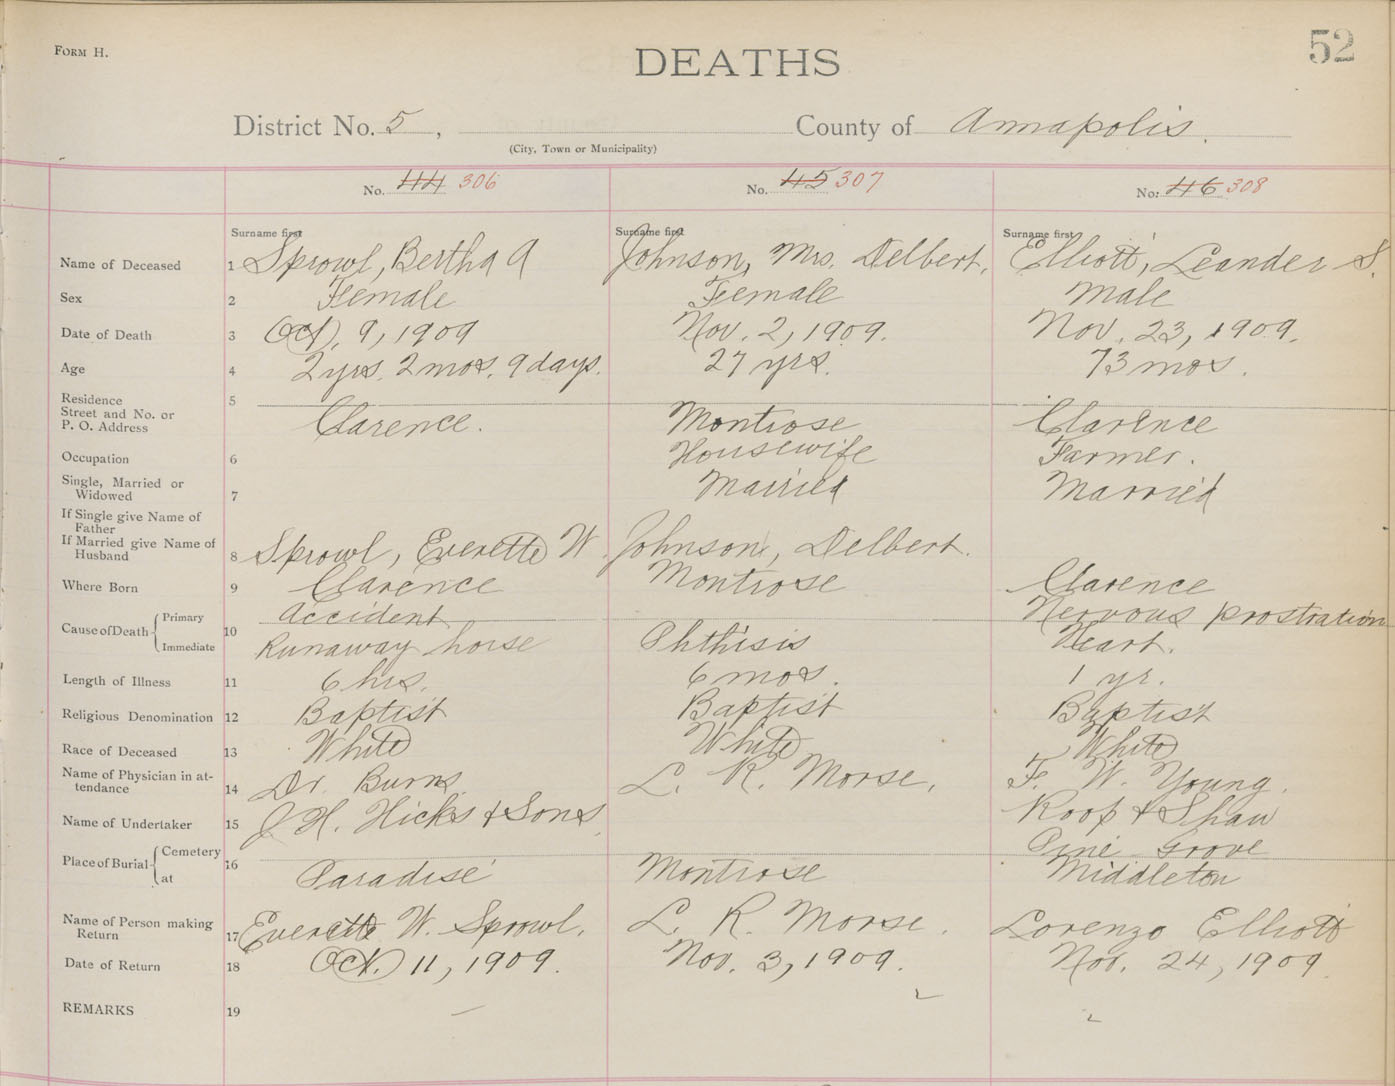 FORM H.
52
DEATHS
District No. 5, County of Annapolis.
(City, Town or Municipality)
No. 44 306 No. 45 307 No. 46 308
Surname first Surname first Surname first
Name of Deceased 1 Sprowl, Bertha A Johnson, Mrs. Delbert. Elliott, Leander S.
Sex 2 Female Female Male
Date of Death 3 Oct. 9, 1909 Nov. 2, 1909. Nov. 23, 1909.
Age 4 2 yrs. 2 mos. 9 days. 27 yrs. 73 mos.
Residence 5
Street and No. or
P. O. Address Clarence. Montrose Clarence
Occupation 6 Housewife Farmer.
Single, Married or
Widowed 7 Married Married
If Single give Name of
Father
If Married give Name of
Husband 8 Sprowl, Everette W. Johnson, Delbert.
Where Born 9 Clarence Montrose Clarence
Cause of Death Primary Accident Nervous prostration
10
Immediate Runaway horse Phthisis Heart.
Length of Illness 11 6 hrs. 6 mos. 1 yr.
Religious Denomination 12 Baptist Baptist Baptist
Race of Deceased 13 White White White
Name of Physician in at-
tendance 14 Dr. Burns. L. R. Morse. F. W. Young.
Name of Undertaker 15 J H. Hicks & Sons Roop & Shaw
Place of Burial Cemetery 16 Pine Grove
at Paradise Montrose Middleton
Name of Person making
Return 17 Everette W. Sprowl. L. R. Morse. Lorenzo Elliott
Date of Return 18 Oct. 11, 1909. Nov. 3, 1909. Nov. 24, 1909.
REMARKS 19